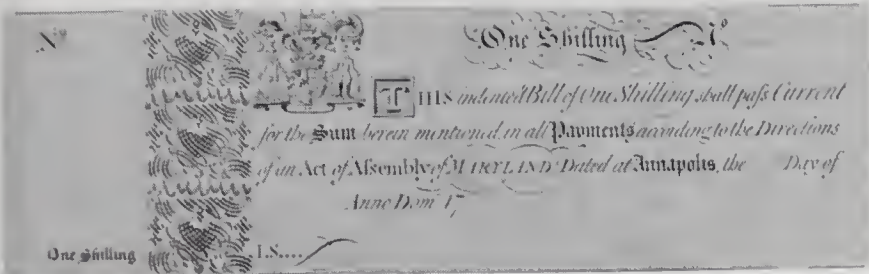 No
One Shilling No
THIS indented Bill of One Shilling shall paſs Current
for the Sum herein mentioned, in all Payments according to the Directions
of an Act of Aſsembly of MARYLAND Dated at Annapolis, the Day of
Anno Dom 17
One Shilling I.S....